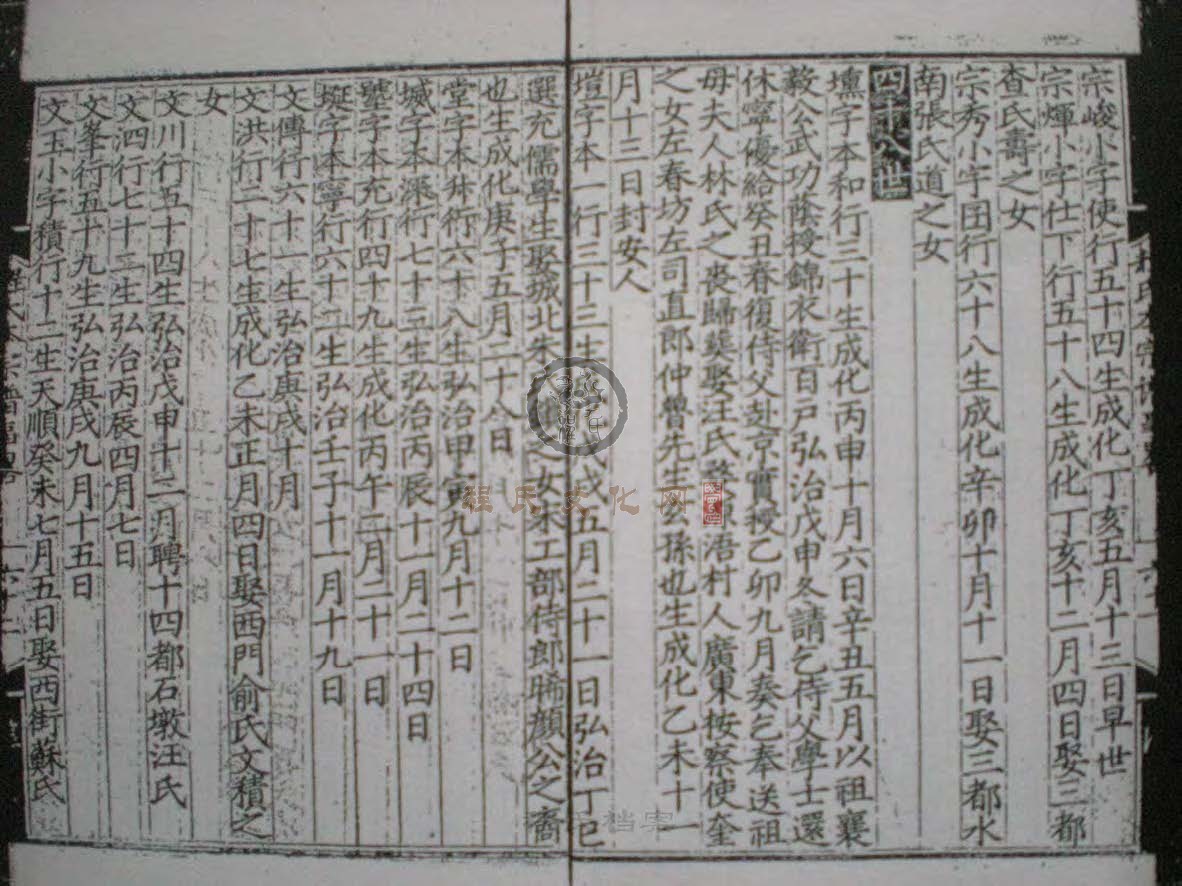 宗峻小字使行五十四生成化丁亥五月十三日早世
宗煇小字仕下行五十八生成化丁亥十二月四日娶三都
查氏壽之女
宗秀小字团行六十八生成化辛卯十月十一日娶三都水
南張氏道之女
四十八世
壎字本和行三十生成化丙申十月六日辛丑五月以祖襄
毅公武功蔭授錦衣衛百戶弘治戊申冬請乞侍父學士還
休寧優給癸丑春復侍父赴京實授乙卯九月奏乞奉送祖
母夫人林氏之喪歸葬娶汪氏婺源浯村人廣東按察使奎
之女左春坊左司直郎仲魯先生玄孫也生成化乙未十一
月十三日封安人
塏字本一行三十三生成化戊戌五月二十一日弘治丁巳
選充儒學生娶城北朱氏之女宋工部侍郎晞顏公之裔
也生成化庚子五月二十八日
堂字本升行六十八生弘治甲寅九月十二日
堿字本深行七十三生弘治丙辰十一月二十四日
壂字本充行四十九生成化丙午二月二十一日
埏字本寧行六十二生弘治壬子十一月十九日
文傳行六十一生弘治庚戌十月
文洪行二十七生成化乙未正月四日娶西門俞氏文積之
女
文川行五十四生弘治戊申十二月聘十四都石墩汪氏
文泗行七十二生弘治丙辰四月七日
文峯行五十九生弘治庚戌九月十五日
文玉小字積行十二生天順癸未七月五日娶西街蘇氏
程氏文化网
档字